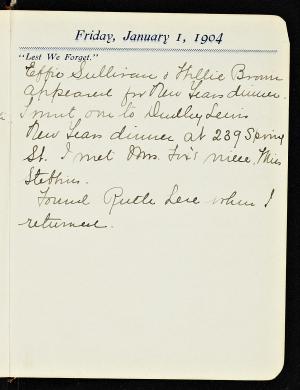 Friday, January 1, 1904
"Lest We Forget."
Effie Sullivan & Hyllie Brown
appeared for New Years dinner.
I went to Dudley
New Years dinner at 239 Spring
St. I met Mrs. Fix's niece, Miss
Stebbins.
Found Ruth here when I
returned.